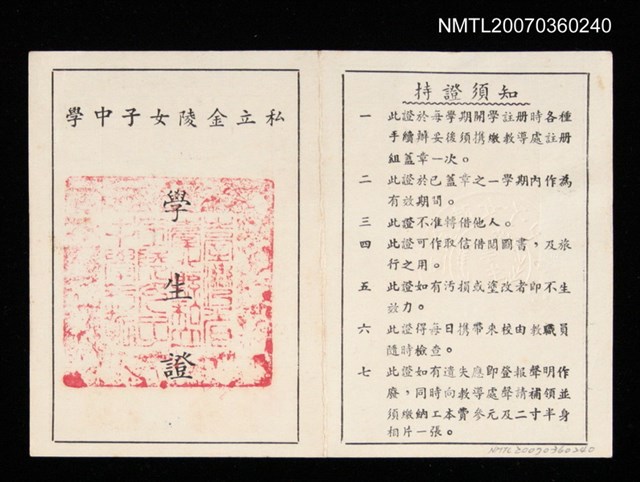 NMTL20070360240
私立金陵女子中學
學
生
證
持證須知
一 此證於每學期開學註册時各種
手續辦妥後須携繳教導處註册
組蓋章一次。
二 此證於已蓋章之一學期內作為
有效期間。
三 此證不准轉借他人。
四 此證可作取信借閱圖書，及旅
行之用。
五 此證如有污損或塗改者即不生
效力。
六 此證得每日携帶來校由教職員
隨時檢查。
七 此證如有遺失應即登報聲明作
廢，同時向教導處聲請補領並
須繳納工本費參元及二寸半身
相片一張。
NMTL20070360240